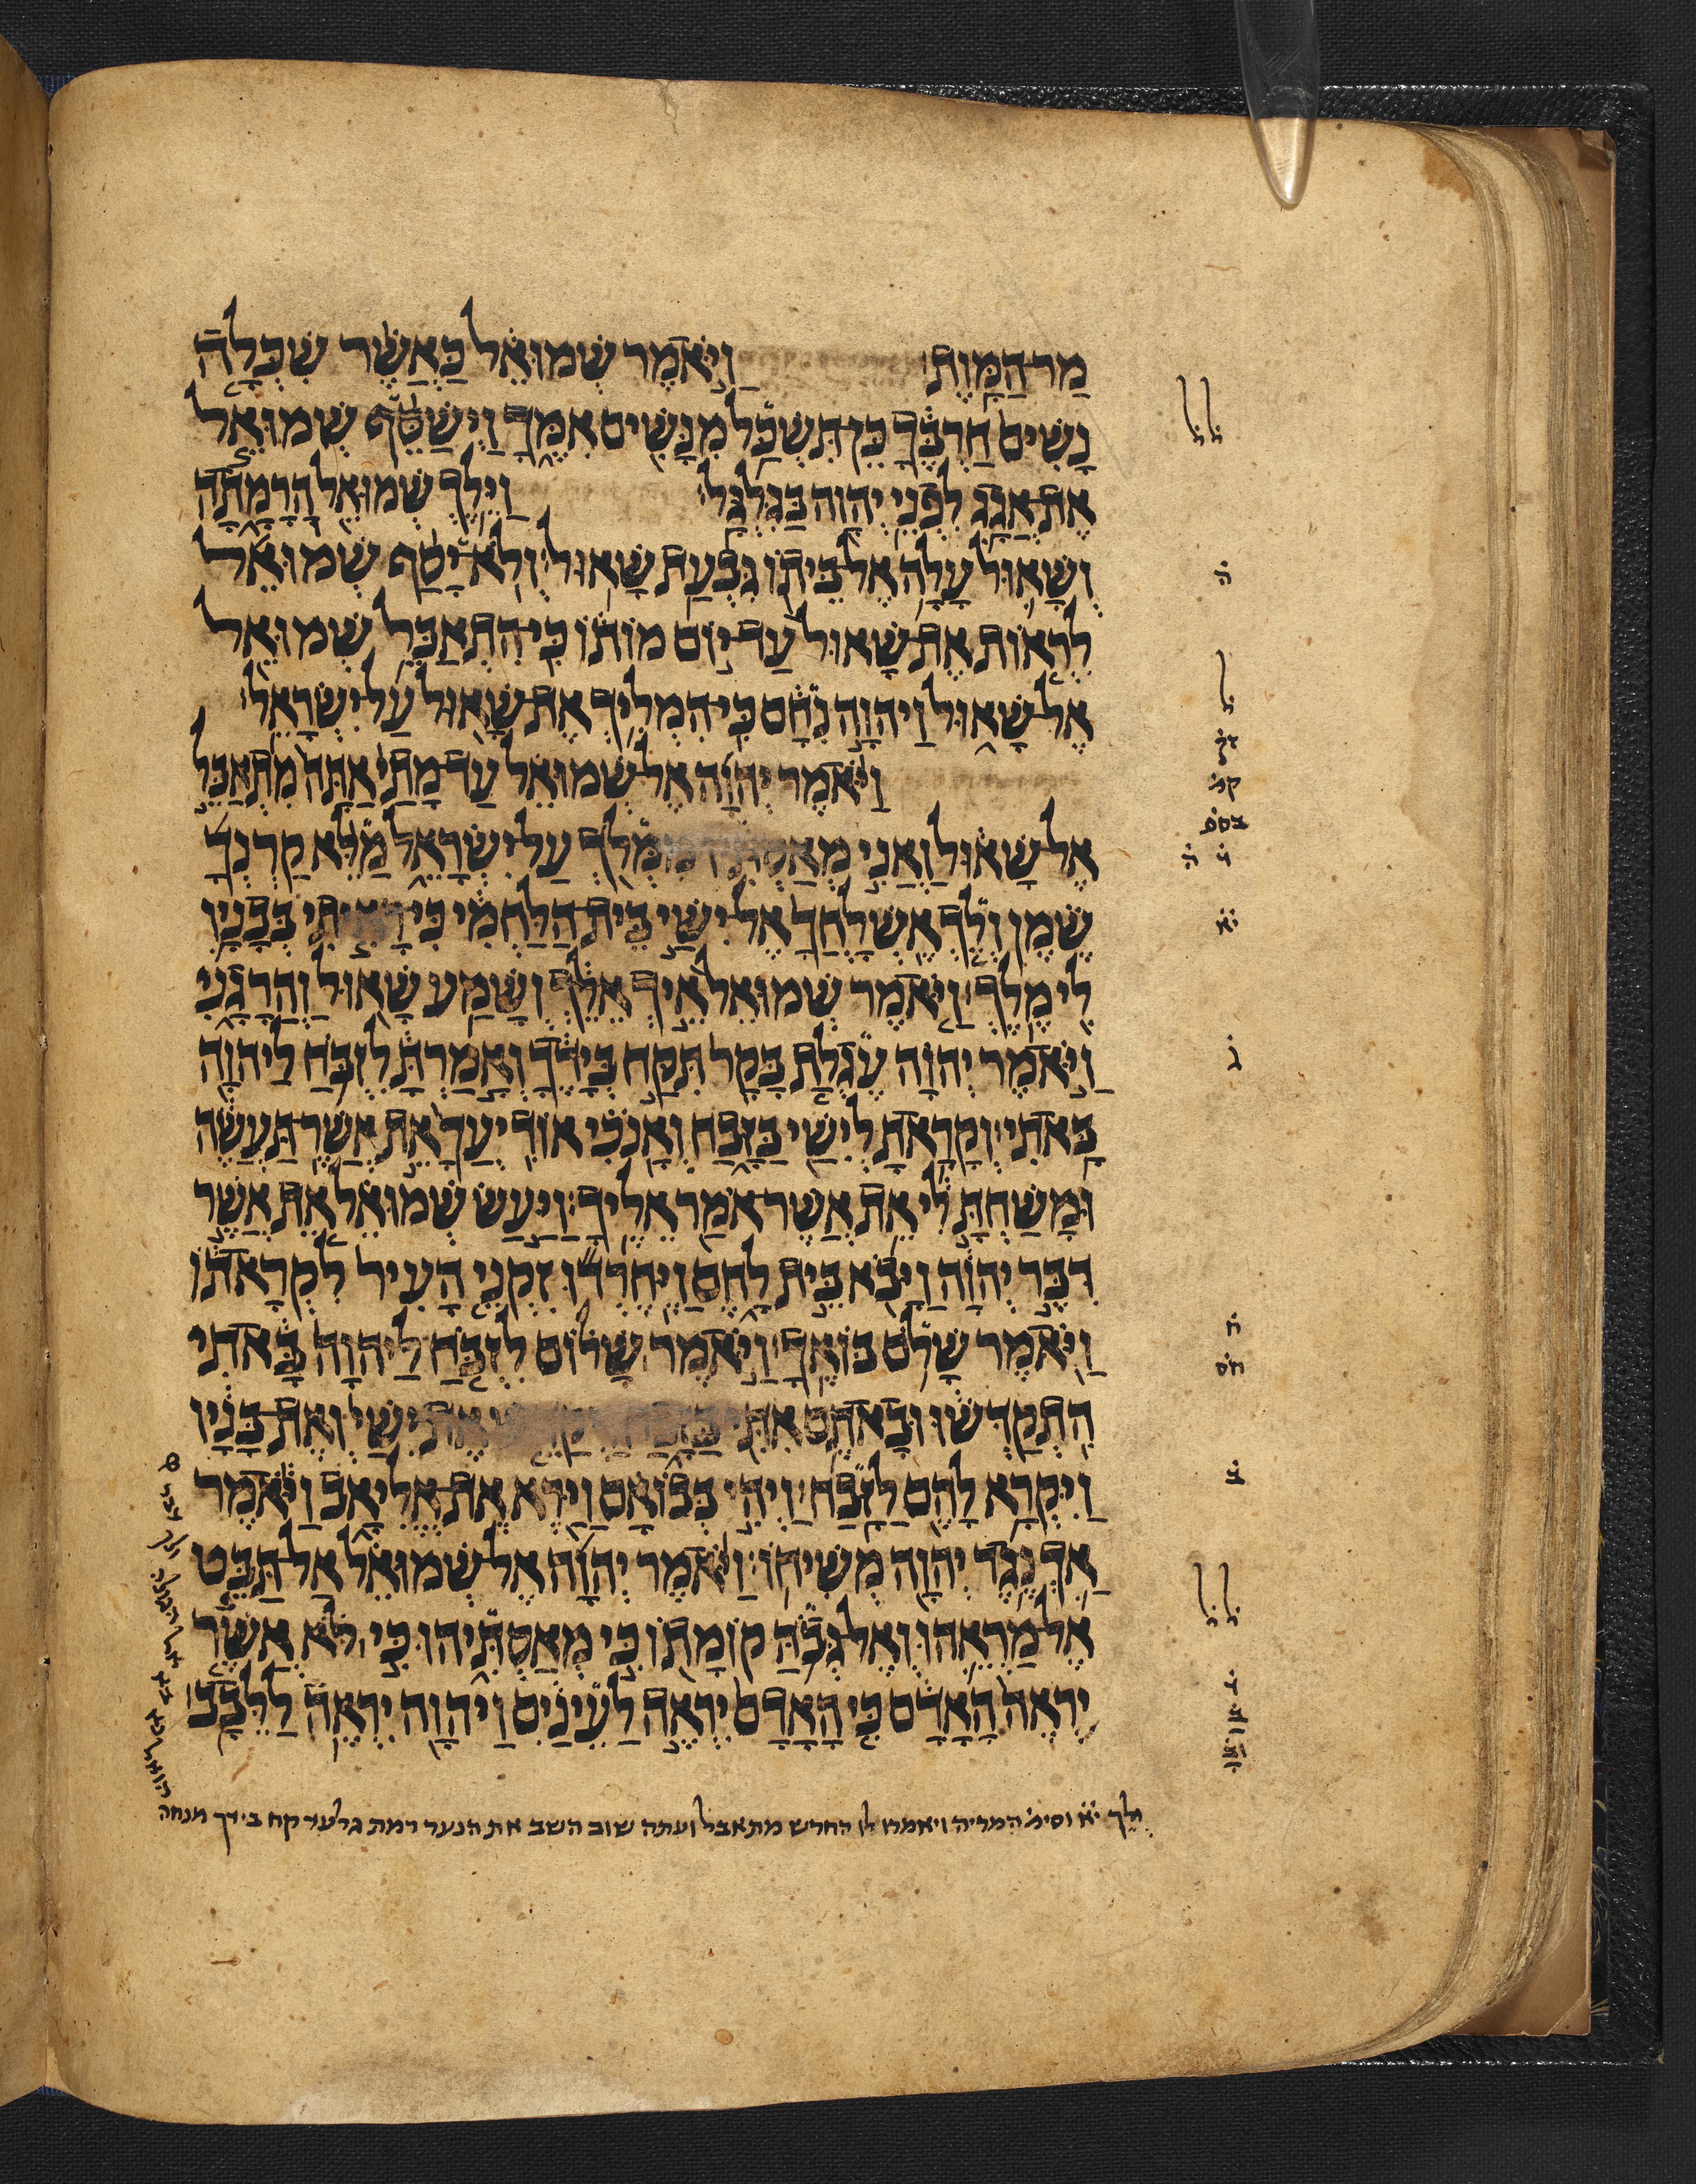 מַר־הַמָּוֶת׃ וַיֹּאמֶר שְׁמוּאֵל כַּאֲשֶׁר שִׁכְּלָה
נָשִׁים חַרְבֶּךָ כֵּן־תִּשְׁכַּל מִנָּשִׁים אִמֶּךָ וַיְשַׁסֵּף שְׁמוּאֵל
אֶת־אֲגָג לִפְנֵי יְהוָה בַּגִּלְגָּל׃ וַיֵּלֶךְ שְׁמוּאֵל הָרָמָתָה
וְשָׁאוּל עָלָה אֶל־בֵּיתוֹ גִּבְעַת שָׁאוּל׃ וְלֹא־יָסַף שְׁמוּאֵל
לִרְאוֹת אֶת־שָׁאוּל עַד־יוֹם מוֹתוֹ כִּי־הִתְאַבֵּל שְׁמוּאֵל
אֶל־שָׁאוּל וַיהוָה נִחָם כִּי־הִמְלִיךְ אֶת־שָׁאוּל עַל־יִשְׂרָאֵל׃
וַיֹּאמֶר יְהוָה אֶל־שְׁמוּאֵל עַד־מָתַי אַתָּה מִתְאַבֵּל
אֶל־שָׁאוּל וַאֲנִי מְאַסְתִּיו מִמְּלֹךְ עַל־יִשְׂרָאֵל מַלֵּא קַרְנְךָ
שֶׁמֶן וְלֵךְ אֶשְׁלָחֲךָ אֶל־יִשַׁי בֵּית־הַלַּחְמִי כִּי־רָאִיתִי בְּבָנָיו
לִי מֶלֶךְ׃ וַיֹּאמֶר שְׁמוּאֵל אֵיךְ אֵלֵךְ וְשָׁמַע שָׁאוּל וַהֲרָגָנִי
וַיֹּאמֶר יְהוָה עֶגְלַת בָּקָר תִּקַּח בְּיָדֶךָ וְאָמַרְתָּ לִזְבֹּחַ לַיהוָה
בָּאתִי׃ וְקָרָאתָ לְיִשַׁי בַּזָּבַח וְאָנֹכִי אוֹדִיעֲךָ אֵת אֲשֶׁר־תַּעֲשֶׂה
וּמָשַׁחְתָּ לִי אֵת אֲשֶׁר־אֹמַר אֵלֶיךָ׃ וַיַּעַשׂ שְׁמוּאֵל אֵת אֲשֶׁר
דִּבֶּר יְהוָה וַיָּבֹא בֵּית לָחֶם וַיֶּחֶרְדוּ זִקְנֵי הָעִיר לִקְרָאתוֹ
וַיֹּאמֶר שָׁלֹם בּוֹאֶךָ׃ וַיֹּאמֶר שָׁלוֹם לִזְבֹּחַ לַיהוָה בָּאתִי
הִתְקַדְּשׁוּ וּבָאתֶם אִתִּי בַּזָּבַח וַיְקַדֵּשׁ אֶת־יִשַׁי וְאֶת־בָּנָיו
וַיִּקְרָא לָהֶם לַזָּבַח׃ וַיְהִי בְּבוֹאָם וַיַּרְא אֶת־אֱלִיאָב וַיֹּאמֶר
אַךְ נֶגֶד יְהוָה מְשִׁיחוֹ׃ וַיֹּאמֶר יְהוָה אֶל־שְׁמוּאֵל אַל־תַּבֵּט
אֶל־מַרְאֵהוּ וְאֶל־גְּבֹהַּ קוֹמָתוֹ כִּי מְאַסְתִּיהוּ כִּי לֹא אֲשֶׁר
יִרְאֶה הָאָדָם כִּי הָאָדָם יִרְאֶה לַעֵינַיִם וַיהוָה יִרְאֶה לַלֵּבָב׃
ולך יא וסימ המריה ויאמרו לו החרש מתאבל ועתה שוב השב את הנער רמת גלער קח בידך מנחה